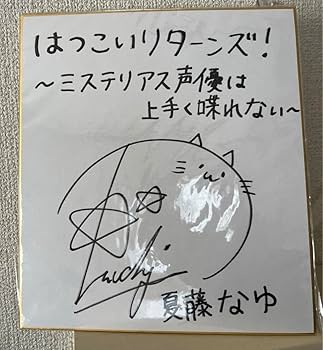 はつこいリターンズ!
～ミステリアス声優は
上手く喋れない～
Luchj
夏藤なゆ